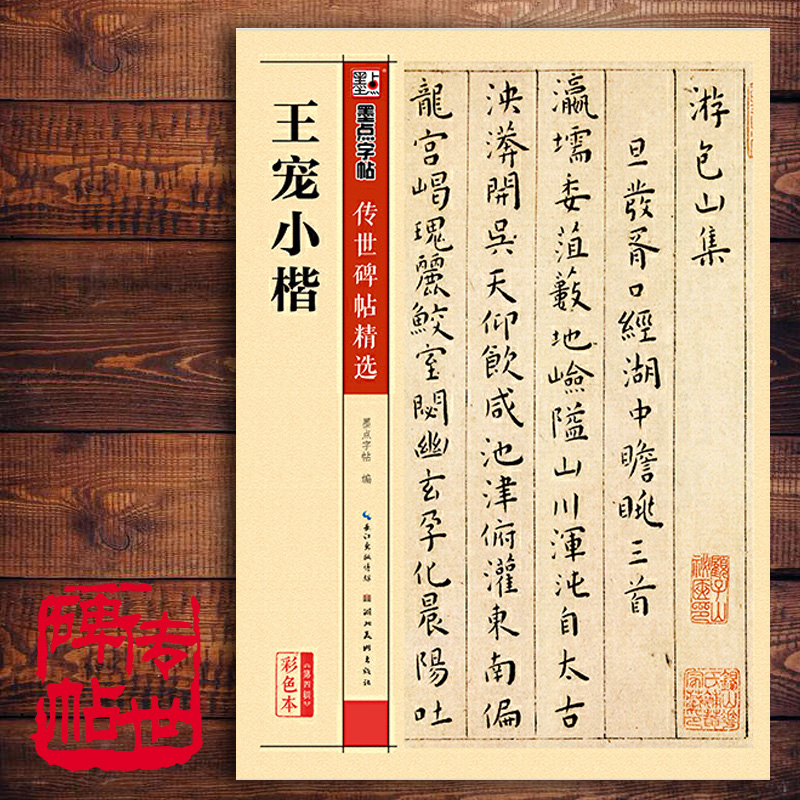 王宠小楷
墨点
墨点字帖
传世碑帖精选
墨点字帖 编
长江出版传媒
湖北美术出版社
彩色本
《第四辑》
游包山集
旦发胥口經湖中瞻眺三首
瀛壖委菹薮地嶮隘山川渾沌自太古
泱漭開吳天仰飲咸池津俯灌東南偏
龍宫嵑瑰麗鮫室閟幽玄孕化晨陽吐
传世
碑帖